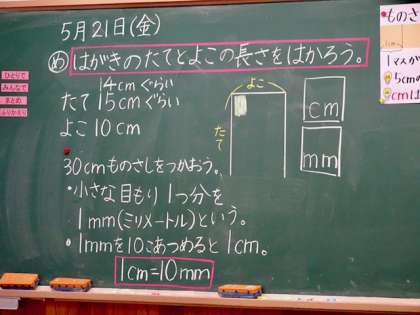 5月21日(金)
め はがきのたてとよこの長さをはかろう。
14cmぐらい
たて 15cmぐらい
よこ 10cm
30cmものさしをつかおう。
・小さな目もり 1つ分を
1mm(ミリメートル)という。
・1mmを10こあつめると1cm。
1cm=10mm
よこ
たて
cm
mm
ひとりで
みんなで
まとめ
ふりかえり
ものさ
1マスが
5cmの
cmは